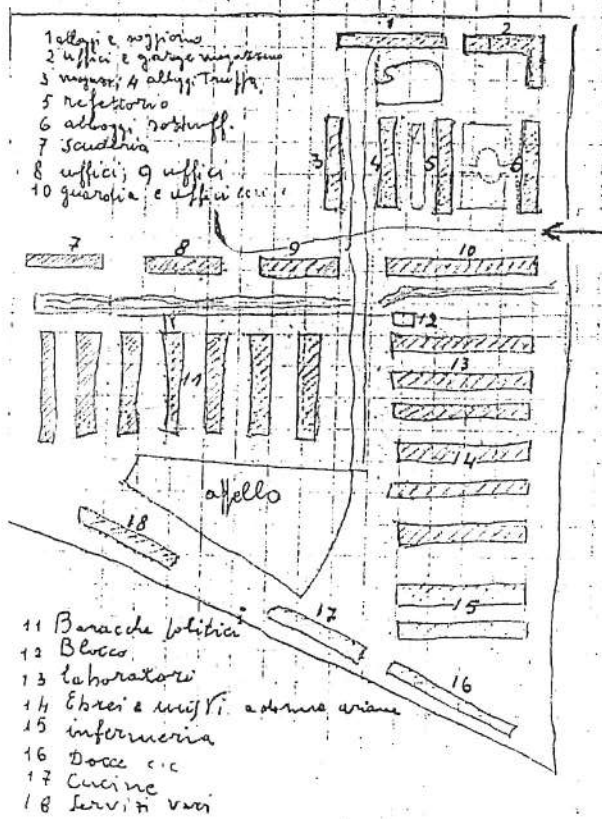 1 alloggi e soggiorno
2 uffici e garage magazzino
3 magazz; 4 alloggi Truppa
5 refettorio
6 alloggi sottuff.
7 Scuderia
8 uffici; 9 uffici
10 guardia e uffici
1
2
5
3
4
5
6
7
8
9
10
12
11
13
14
appello
18
15
17
16
11 Baracche politici
12 Blocco
13 laboratori
14 Ebrei e misti a donne ariane
15 infermeria
16 Docce c.c
17 Cucine
18 Servizi vari